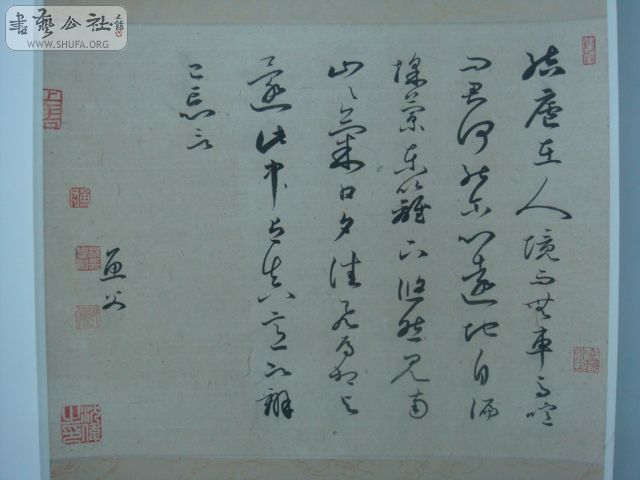 書藝公社
WWW.SHUFA.ORG
結廬在人境而無車馬喧
問君何能爾心遠地自偏
採菊東籬下悠然見南
山〻氣日夕佳飛鳥相與
還此中有真意欲辨
已忘言